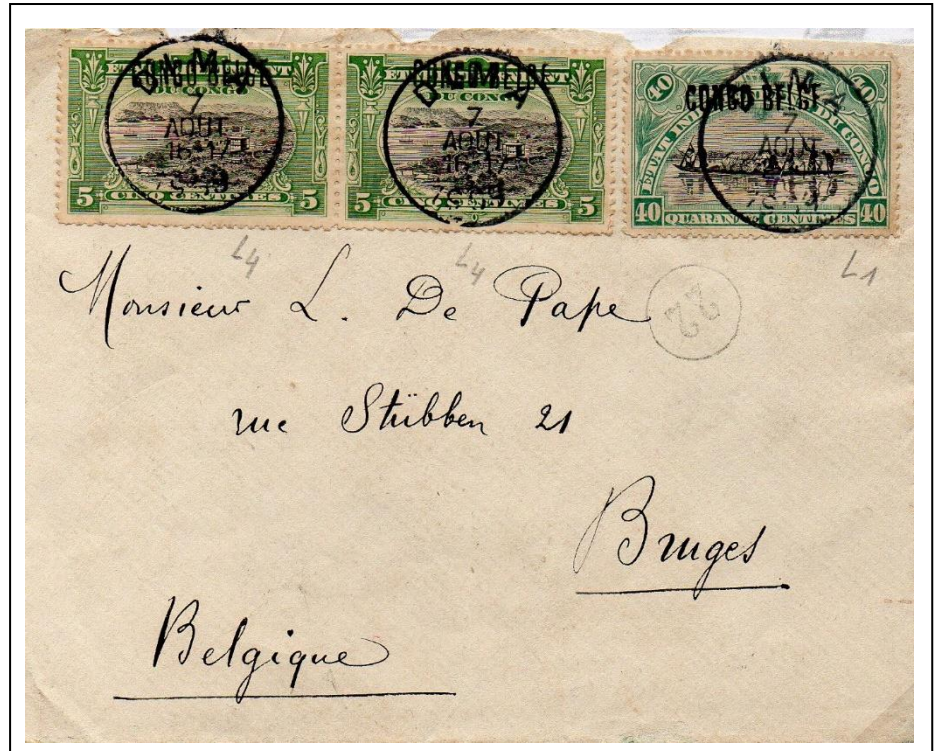 CONGO BELGE
DU CONGO
7
AOUT
16-17
5 CINQ CENTIMES 5
CONGO BELGE
DU CONGO
7
AOUT
16-17
5 CINQ CENTIMES 5
40 40
CONGO BELGE
DU CONGO
DIMA
7
AOUT
40 QUARANTE CENTIMES 40
L4 L4 L1
Monsieur L. De Pape
22
rue Stübben 21
Bruges
Belgique